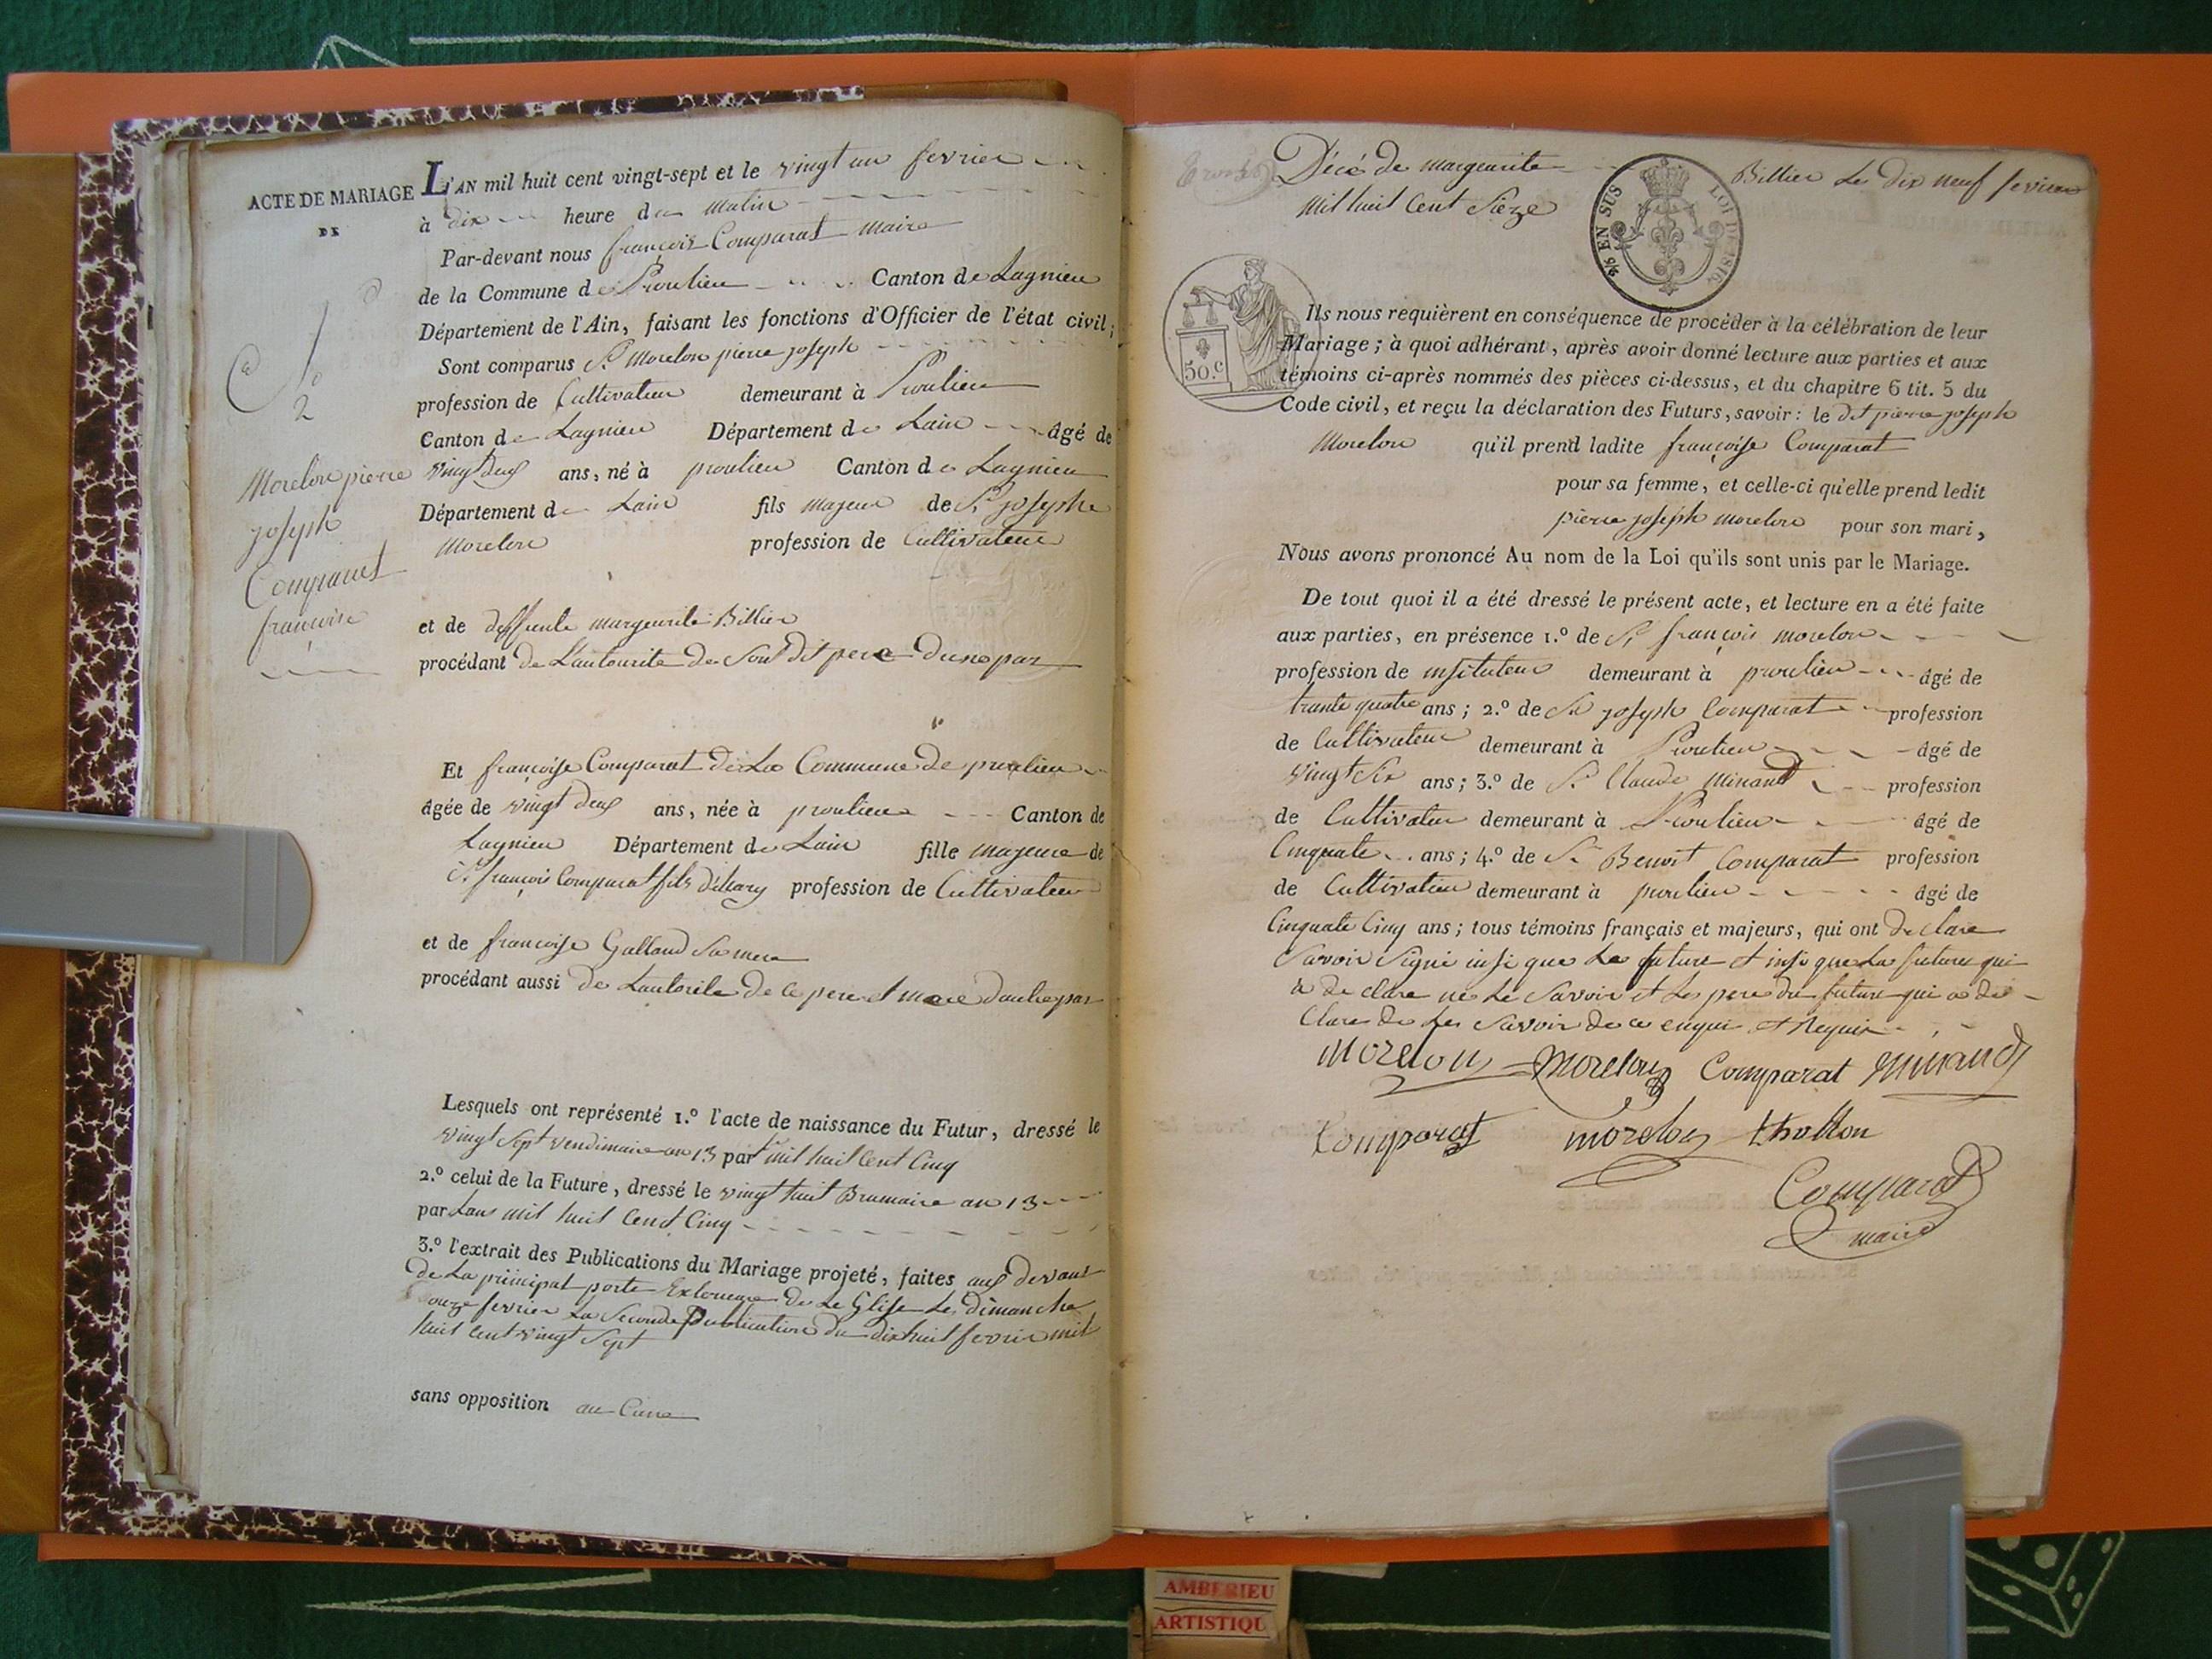 ACTE DE MARIAGE
DE
N.º 2
Morelon pierre
joseph
Comparat
francoise
L'AN mil huit cent vingt-sept et le vingt un fevrier
à dix heure du matin
Par-devant nous françois Comparat maire
de la Commune de Proulieu Canton de Lagnieu
Département de l'Ain, faisant les fonctions d'Officier de l'état civil;
Sont comparus Sr. Morelon pierre joseph
profession de Cultivateur demeurant à Proulieu
Canton de Lagnieu Département de Lain âgé de
vingt deux ans, né à proulieu Canton de Lagnieu
Département de Lain fils majeur de Sr. josephe
Morelon profession de Cultivateur
et de deffunte margeurite Billier
procédant de L'autourite de Son dit pere dune par
Et françoise Comparat de La Commune de proulieu
âgée de vingt deux ans, née à proulieu Canton de
Lagnieu Département de Lain fille majeure de
Sr. françois Comparat fils profession de Cultivateur
et de francoise Galland Sa mere
procédant aussi de Lautorite de ce pere et mere dautre par
Lesquels ont représenté 1.º l'acte de naissance du Futur, dressé le
vingt Sept vendimaire an 13 par mil huit Cent Cinq
2.º celui de la Future, dressé le vingt huit Brumaire an 13
par Lans mil huit Cent Cinq
3.º l'extrait des Publications du Mariage projeté, faites aux devant
de La prinicipal porte de Le Glise Le dimanche
onze fevrier La Seconde Publication du dix huit fevrier mil
huit cent vingt Sept
sans opposition au Cune
Décé de margeurite Billier Le dix neuf fevrier
mil huit Cent Sieze
5/5 EN SUS LOI DE 1816
50.c
Ils nous requièrent en conséquence de procéder à la célébration de leur
Mariage; à quoi adhérant, après avoir donné lecture aux parties et aux
témoins ci-après nommés des pièces ci-dessus, et du chapitre 6 tit. 5 du
Code civil, et reçu la déclaration des Futurs, savoir: le dit pierre joseph
Morelon qu'il prend ladite françoise Comparat
pour sa femme, et celle-ci qu'elle prend ledit
pierre joseph morelon pour son mari,
Nous avons prononcé Au nom de la Loi qu'ils sont unis par le Mariage.
De tout quoi il a été dressé le présent acte, et lecture en a été faite
aux parties, en présence 1.º de Sr. françois morelon
profession de instituteur demeurant à proulieu âgé de
trante quatre ans; 2.º de Sr. joseph Comparat profession
de Cultivateur demeurant à Proulieu âgé de
vingt Six ans; 3.º de Sr. Claude Minand profession
de Cultivateur demeurant à Proulieu âgé de
Cinquate ans; 4.º de Sr. Benoit Comparat profession
de Cultivateur demeurant à proulieu âgé de
Cinquate Cinq ans; tous témoins français et majeurs, qui ont de clare
Savoir Signé insi que Le future et insi que La future qui
a de clare ne Le Savoir et Le pere du future qui a de
Clare de Le Savoir de ce enqui et Requi
morelon morelon Comparat Minand
Comparat morelon thollon
Comparat
maire
AMBERIEU
ARTISTIQU